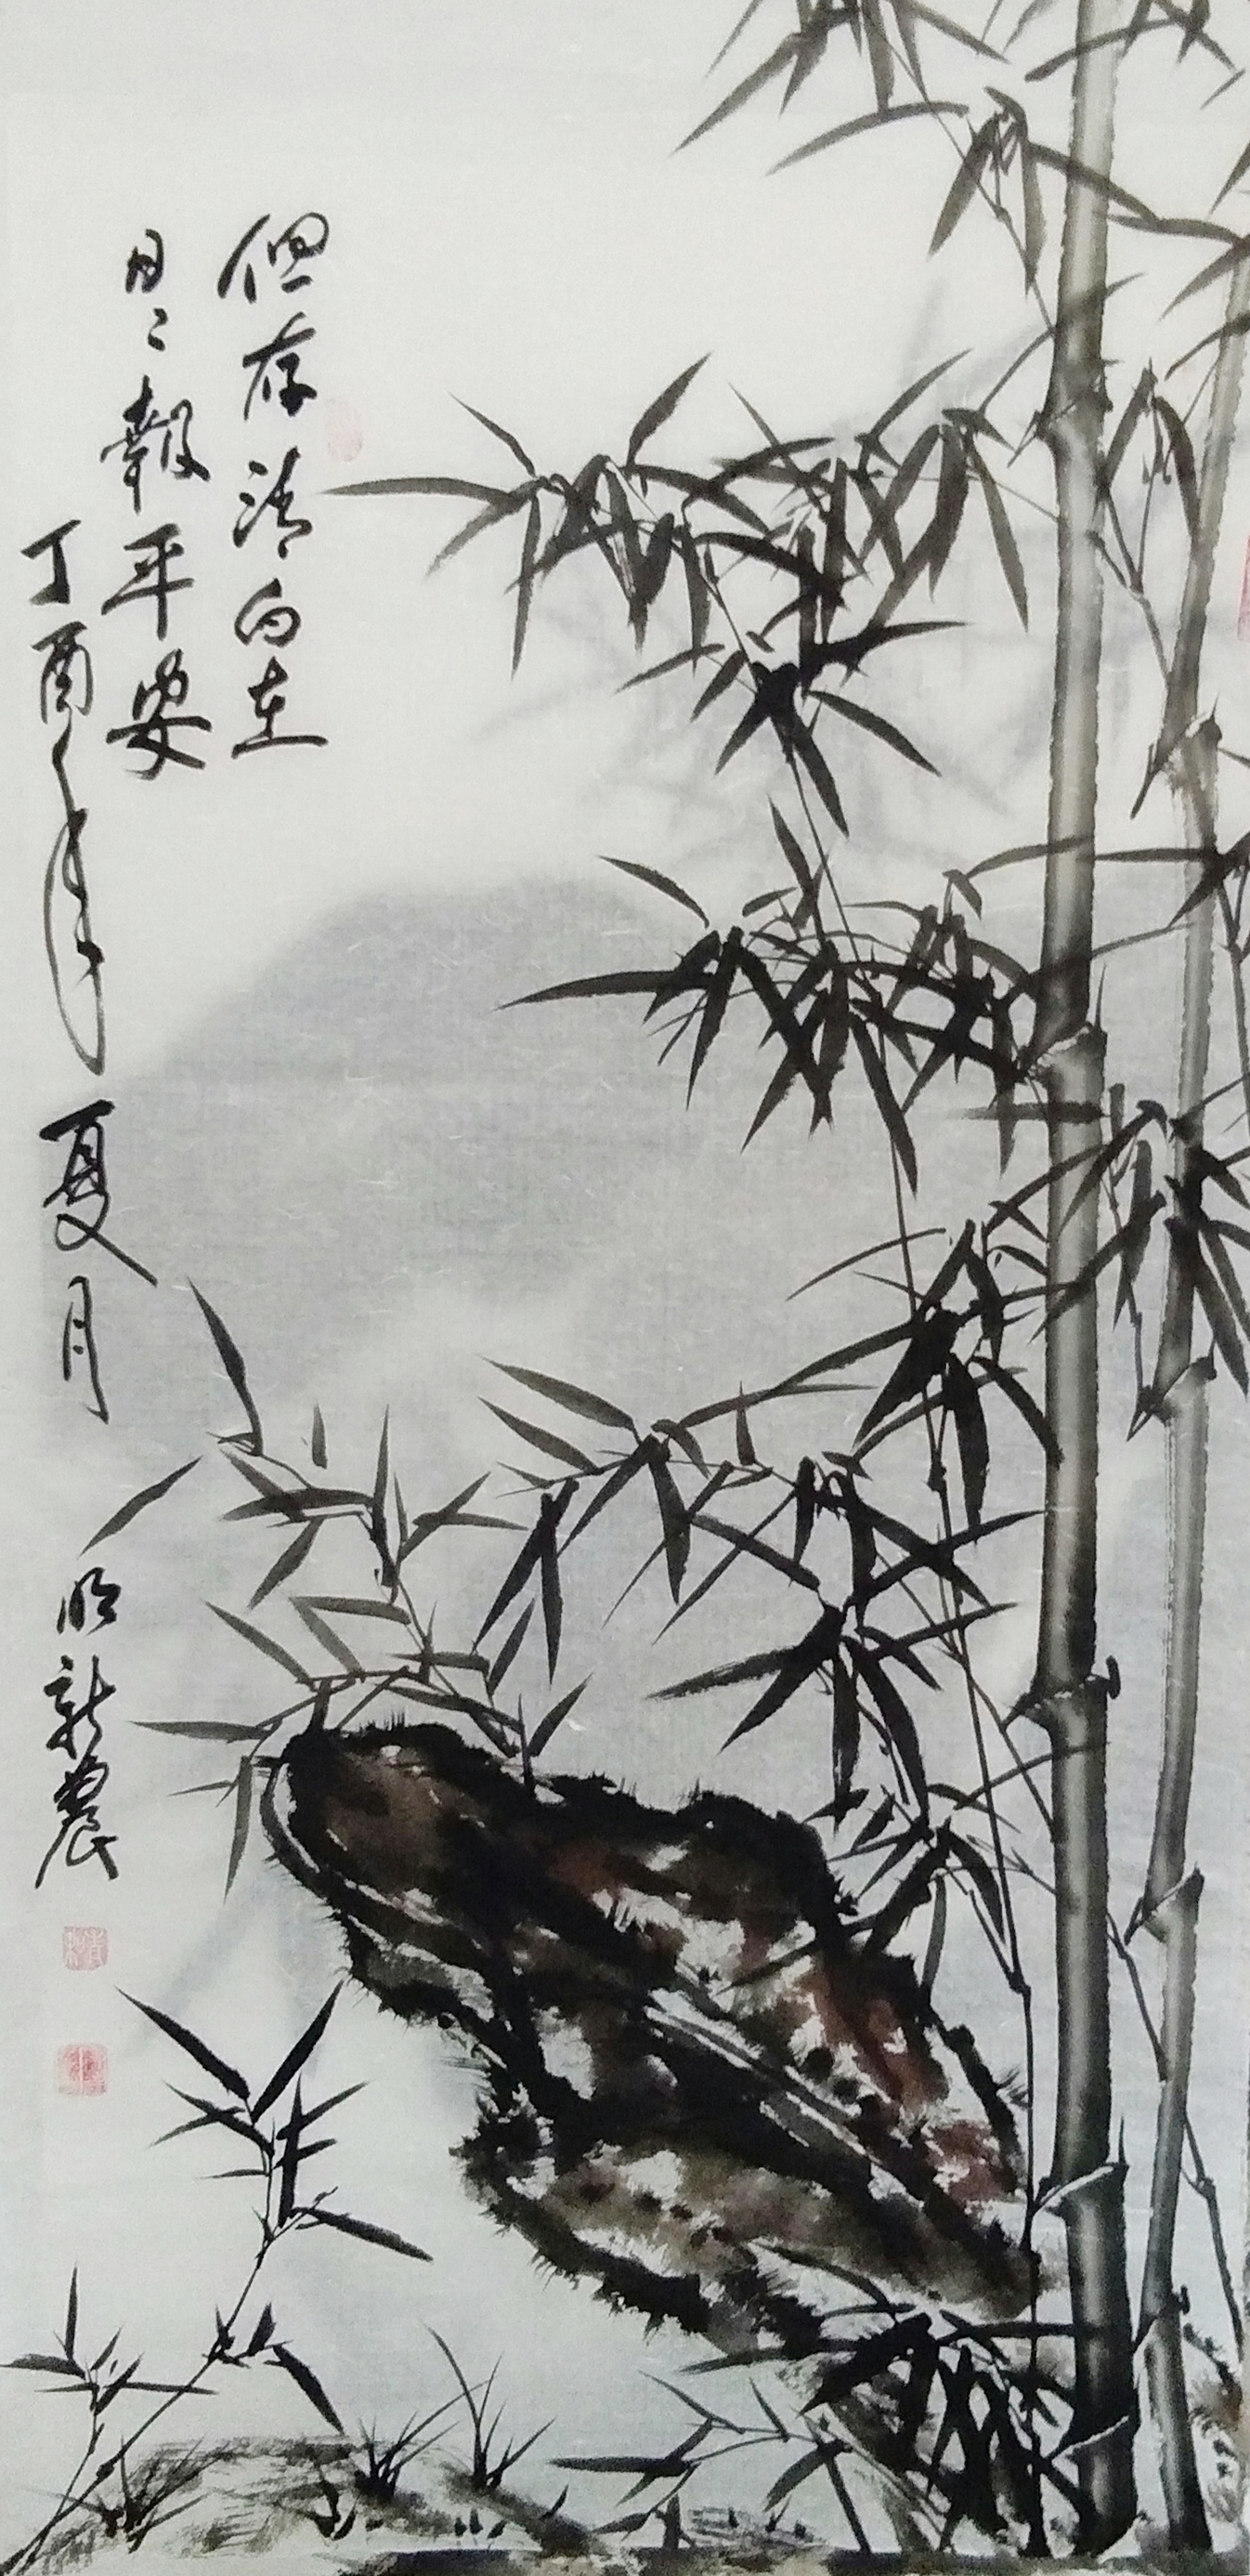 但存清白在
日々報平安
丁酉年夏月 新農